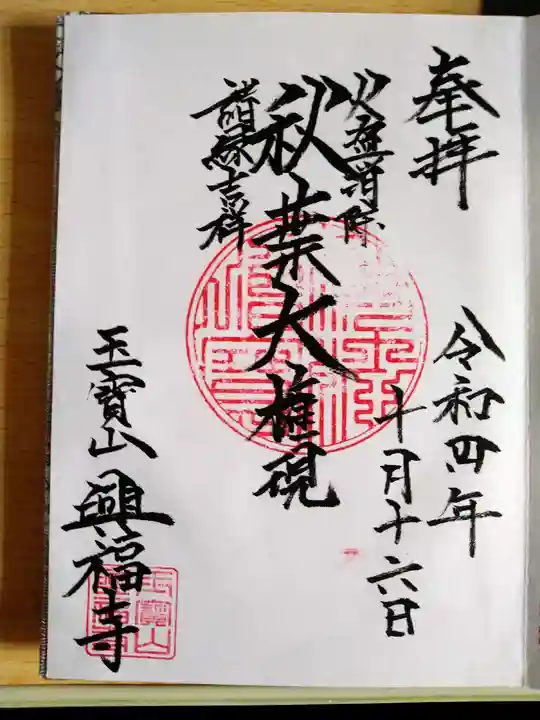 奉拝
令和四年
十月十六日
火盗消除
秋葉大権現
諸縁吉祥
玉寶山
興福寺